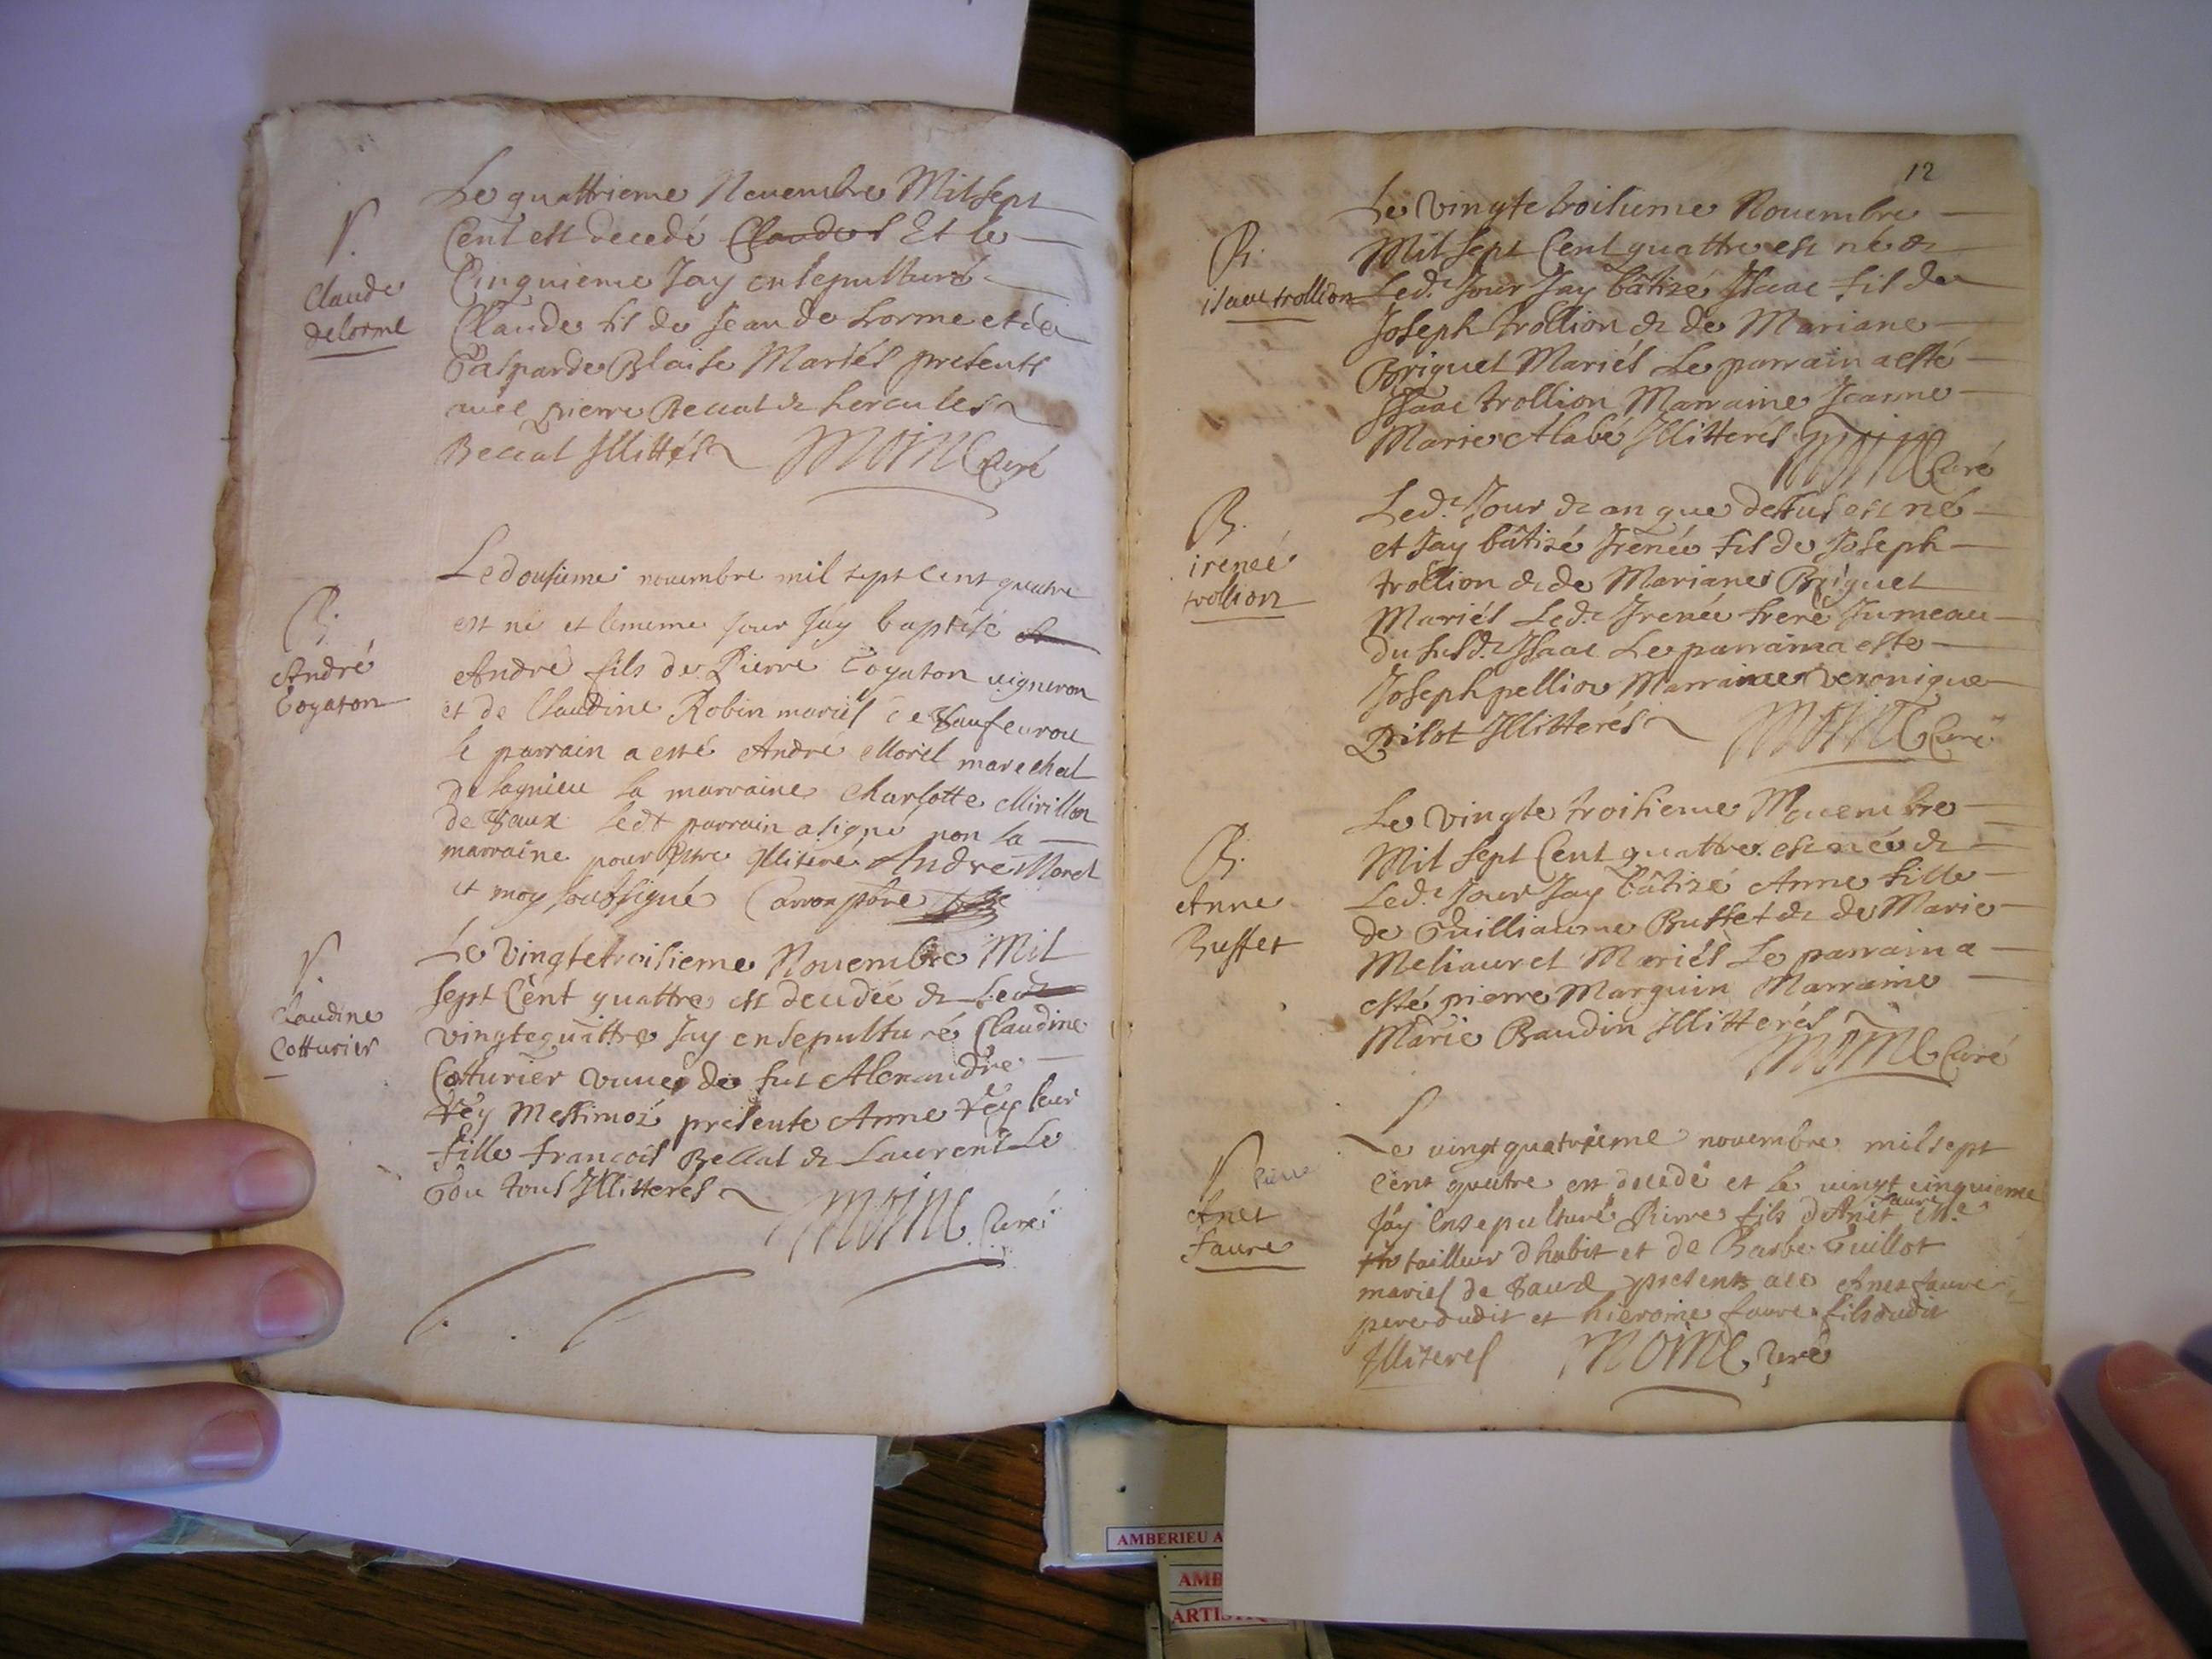 Le quattrieme Novembre Mil sept
S.
Cent est decedé Claudes Et le
Cinquieme Jay ensepulturé
Claude
delorme
Claude fil de Jean de Lorme et de
Gasparde Blaise Mariés presents
avec pierre Beccat & hercules
Beccat Illittés Moine Curé
Le dousieme novembre mil sept cent quatre
B.
est né et le meme jour Jay baptisé
André
Cogaton
André fils de Pierre Cogaton vigneron
et de Claudine Robin mariés de
le parrain a esté André Morel marechal
de lagnieu la marraine Charlotte Mirillon
de Vaux ledt parrain a signé non la
marraine pour estre illiteré André Morel
et moy soubsigné
S.
Le Vingte troisieme Novembre Mil
sept Cent quattre est decedée & led
Claudine
Cotturier
vingte quattre Jay ensepulturé Claudine
Cotturier vuve de fut Alexandre
presente Anne leur
fille françois Beccat & Laurent Le
tous Illitterés Moine Curé
12
Le Vingte troisieme Novembre
B.
Mil sept Cent quattre est né &
isaac trollion
Led. Jour Jay bâtizé Isaac fil de
Joseph trollion & de Mariane
Briquet Mariés Le parrain a esté
Isaac trollion Marraine Jeanne
Marie Alabé Illitterés Moine Curé
B.
Led. Jour & an que dessus est né
irenee
trollion
et Jay bâtizé Irenée fil de Joseph
trollion & de Mariane Briquet
Mariés Led. Irenée frere Jumeau
du susd. Isaac Le parrain a esté
Joseph pellion Marraine veronique
Pilot Illitterés Moine Curé
Le Vingte troisieme Novembre
B.
Mil sept Cent quattre est née &
Anne
Buffet
Led. Jour Jay bâtizé Anne fille
de Guilliaume Buffet & de Marie
Meliauret Mariés Le parrain a
esté pierre Marguin Marraine
Marie Baudin Illitterés
Moine Curé
S
Le vingt quatrieme novembre mil sept
Pierre
cent quatre est decedé et le vingt cinquieme
Anet
faure
Jay ensepulturé Pierre fils d'Anet faure
tailleur d'habit et de Barbe Guillot
mariés de Vaux presents Anet faure
pere dudit et hierome faure fils dudit
Illiterés Moine Curé
AMBERIEU A
AMB